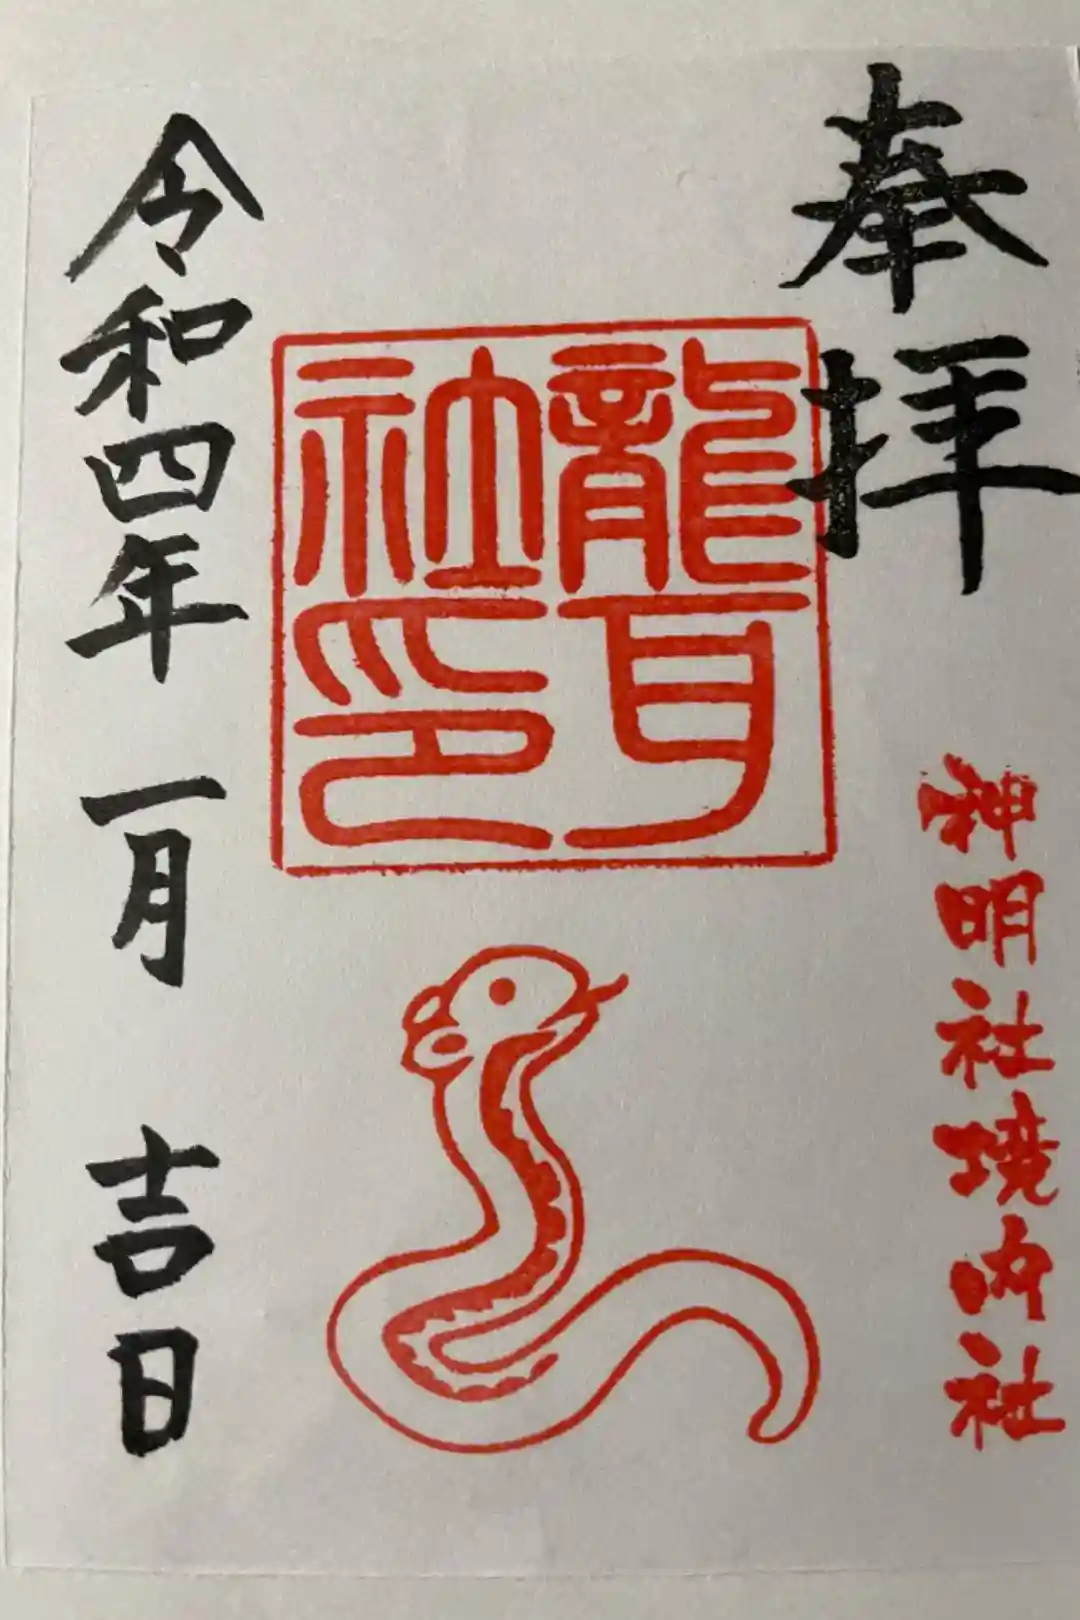 奉拝
神明社境内社
龍耳
社印
令和四年 一月 吉日